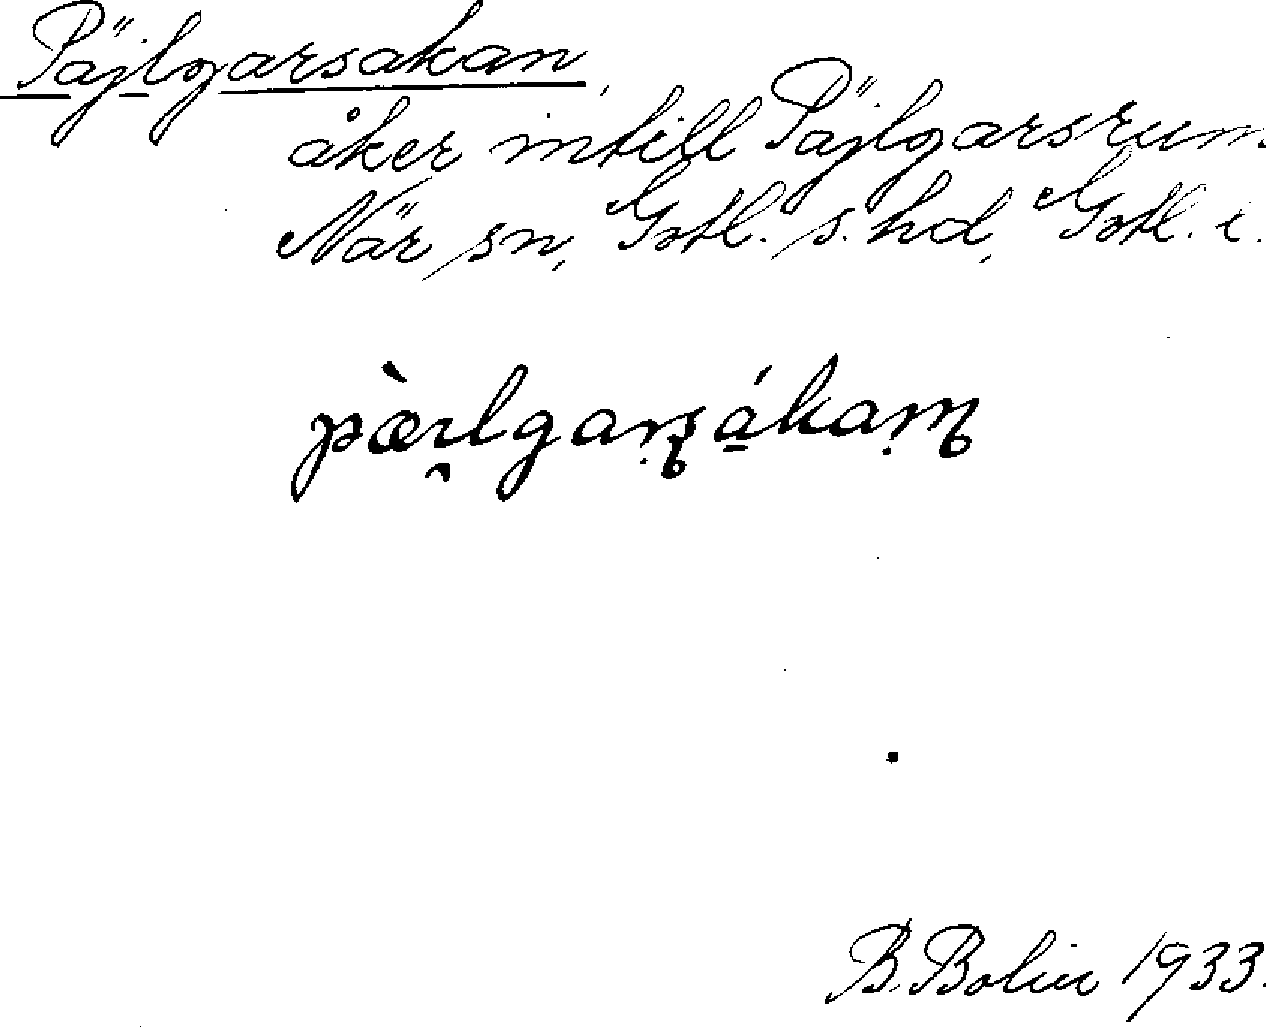 Päjlgarsakan,
åker intill Päjlgarsrum.
När sn, Gotl. s. hd, Gotl. l.
B. Bolin 1933.